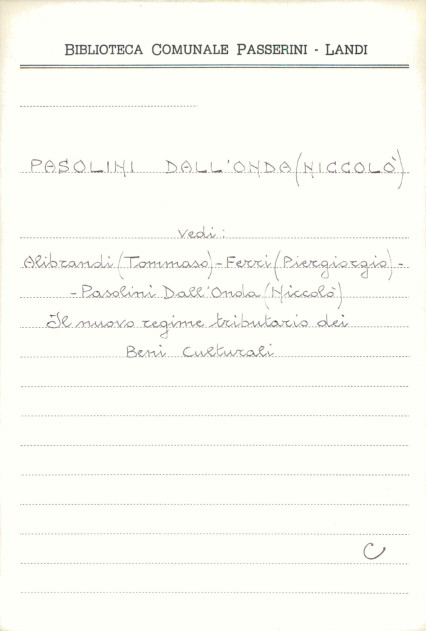 BIBLIOTECA COMUNALE PASSERINI - LANDI
PASOLINI DALL'ONDA (NICCOLÒ)
Vedi:
Alibrandi (Tommaso) - Ferri (Piergiorgio) -
- Pasolini Dall'Onda (Niccolò)
Il nuovo regime tributario dei
Beni Culturali
C